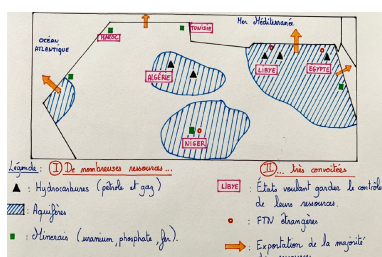 Mer Méditerranée
OCÉAN
ATLANTIQUE
MAROC
TUNISIE
ALGÉRIE
LIBYE
EGYPTE
NIGER
Légende: I De nombreuses ressources...
: Hydrocarbures (pétrole et gaz)
: Aquifères
: Minerais (uranium, phosphate, fer).
II ... très convoitées
LIBYE : États voulant garder le contrôle
de leurs ressources.
: FTN étrangères
: Exportation de la majorité